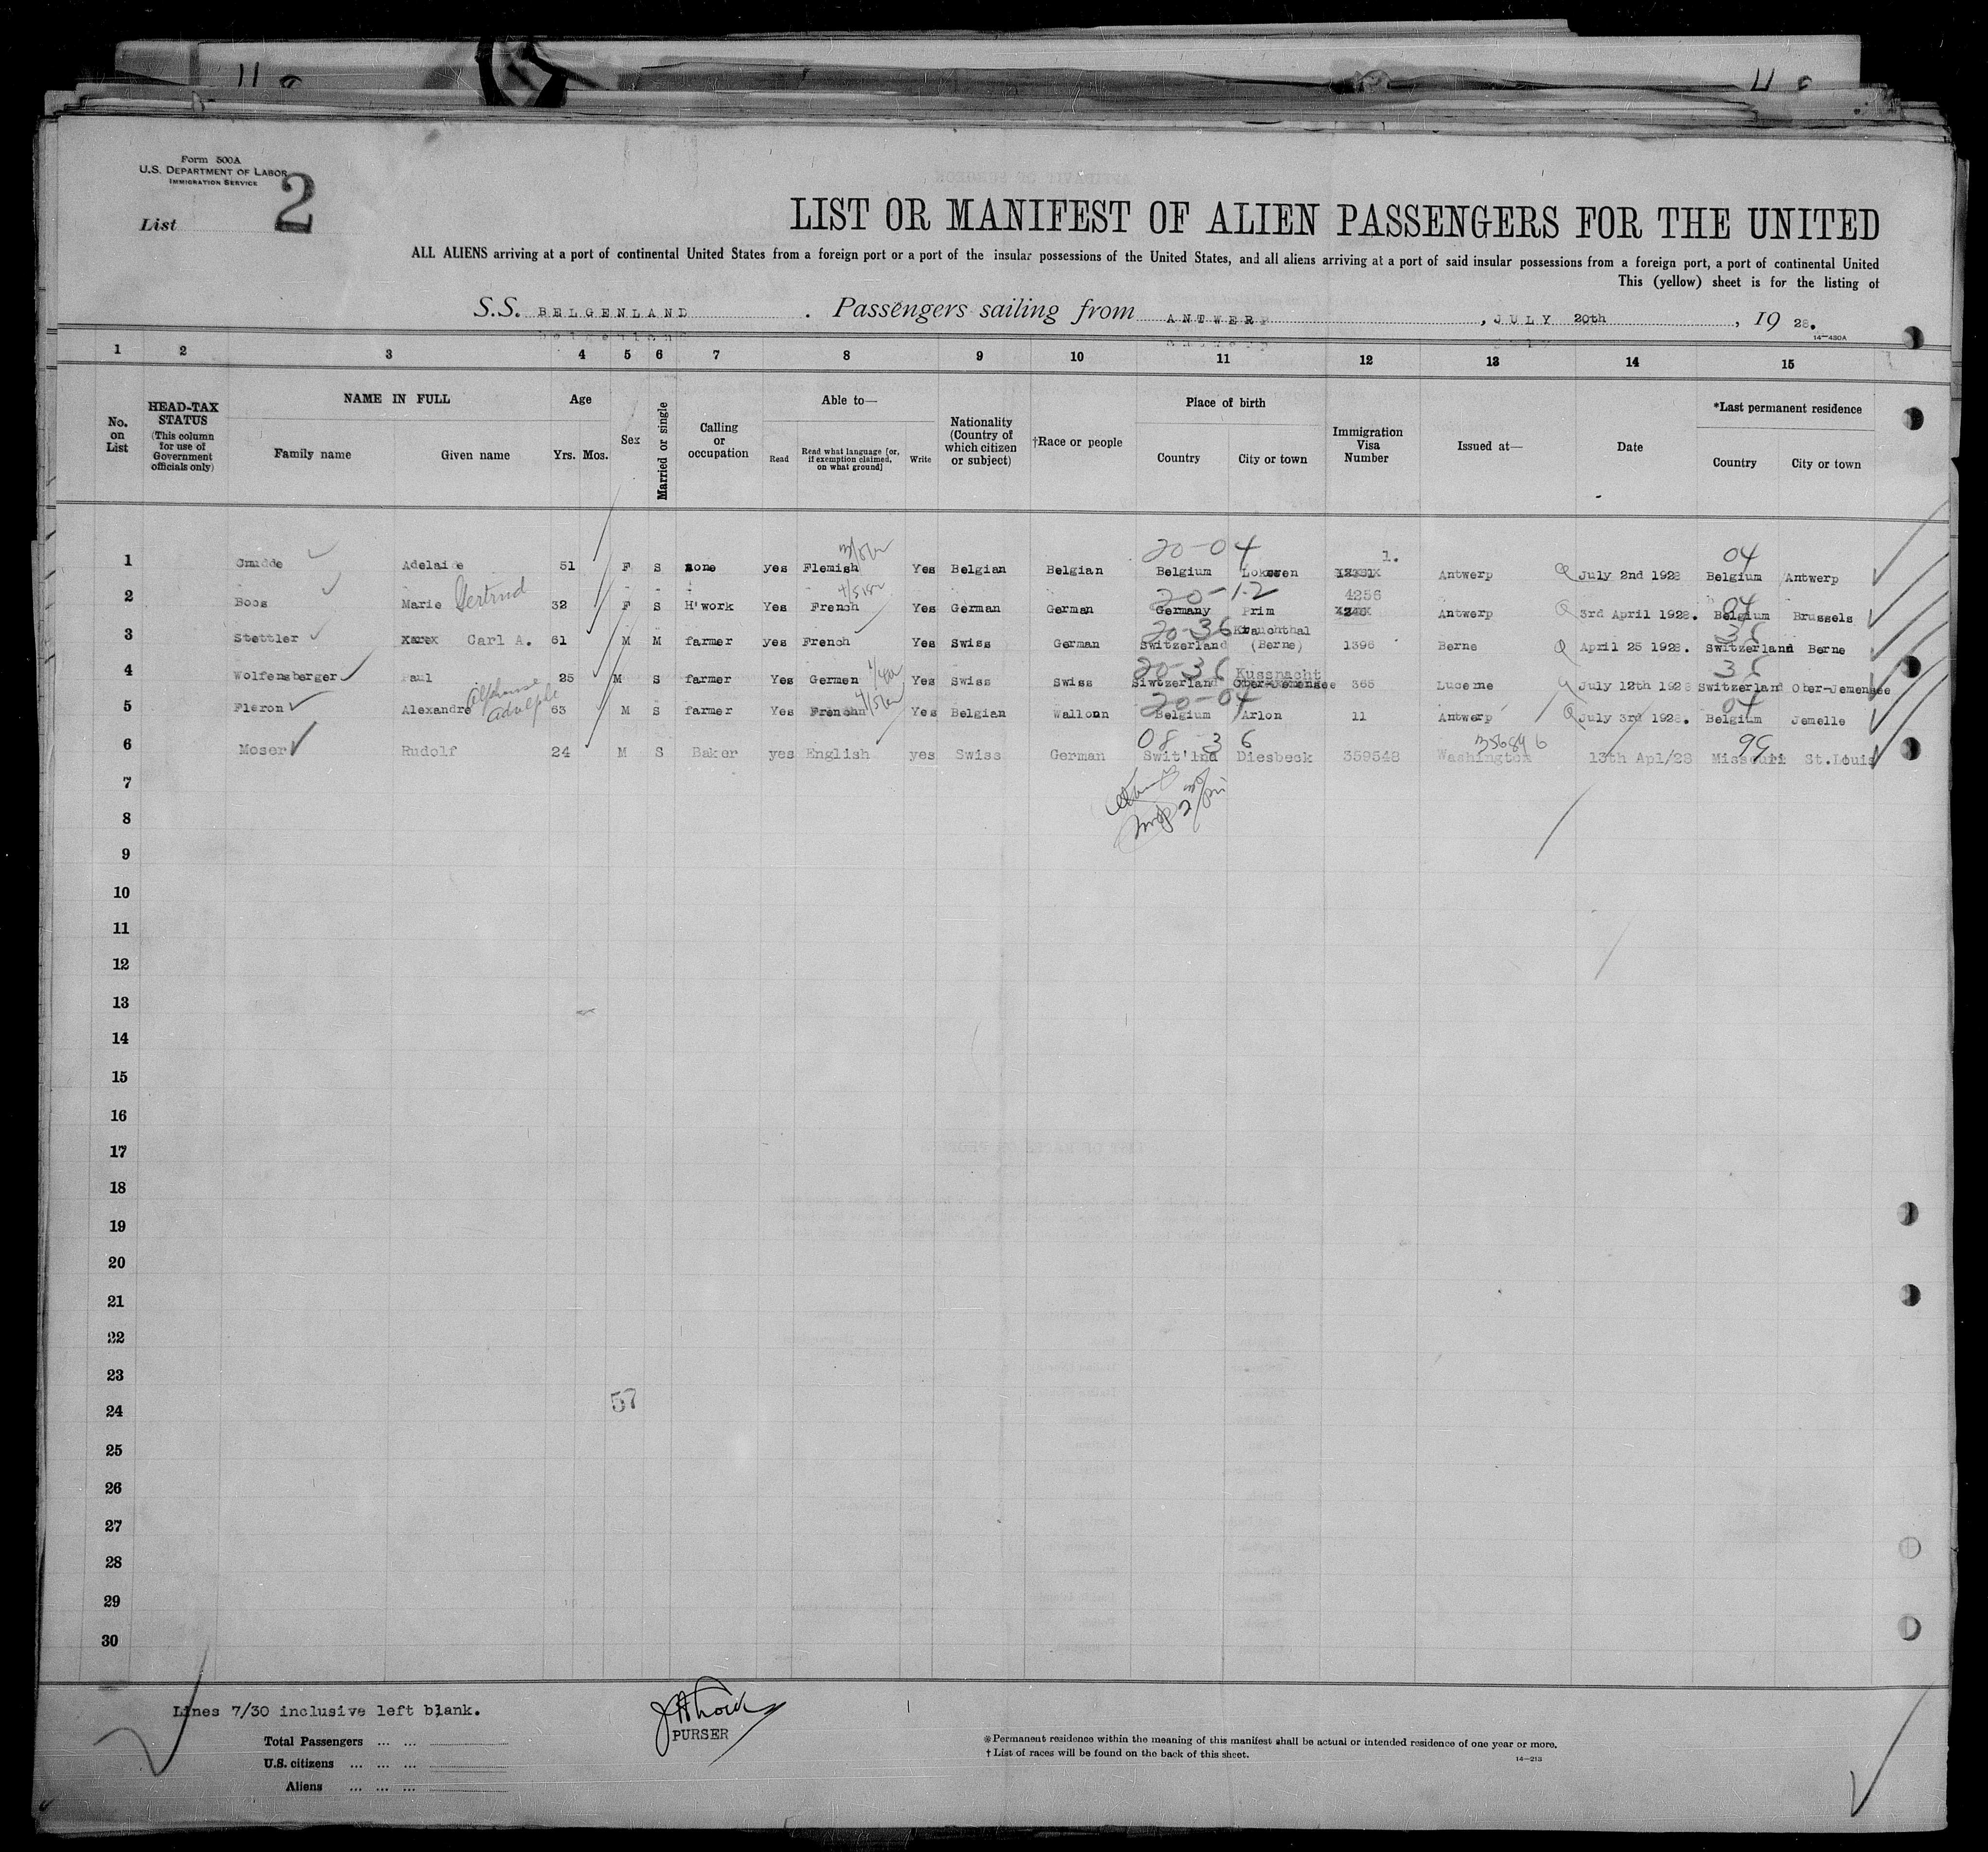 Form 500A
U.S. DEPARTMENT OF LABOR
IMMIGRATION SERVICE
List 2
LIST OR MANIFEST OF ALIEN PASSENGERS FOR THE UNITED
ALL ALIENS arriving at a port of continental United States from a foreign port or a port of the insular possessions of the United States, and all aliens arriving at a port of said insular possessions from a foreign port, a port of continental United
This (yellow) sheet is for the listing of
S.S. BELGENLAND . Passengers sailing from ANTWERP , JULY 20th , 19 28.
14—430A
1 2 3 4 5 6 7 8 9 10 11 12 13 14 15
No. on List
HEAD-TAX STATUS
(This column for use of Government officials only)
NAME IN FULL
Family name Given name
Age
Yrs. Mos.
Sex
Married or single
Calling or occupation
Able to—
Read
Read what language [or, if exemption claimed, on what ground]
Write
Nationality (Country of which citizen or subject)
†Race or people
Place of birth
Country City or town
Immigration Visa Number
Issued at—
Date
*Last permanent residence
Country City or town
20-04 1. 04
1 Adelaide 51 F S none yes Flemish Yes Belgian Belgian Belgium Lokeren Antwerp July 2nd 1928 Belgium Antwerp
20-12 4256 04
2 Boos Marie Gertrud 32 F S H'work Yes French Yes German German Germany Prim Antwerp 3rd April 1928. Belgium Brussels
20-36 Krauchthal 36
3 Stettler Carl A. 61 M M farmer yes French Yes Swiss German Switzerland (Berne) 1396 Berne April 25 1928. Switzerland Berne
20-36 Kussnacht 36
4 Wolfensberger Paul 25 M S farmer Yes Germen Yes Swiss Swiss Siwtzerland Ober-Jemensee 365 Lucerne July 12th 1928 Switzerland Ober-Jemensee
Alphonse 20-04 04
5 Fleron Alexandre Adolphe 63 M S farmer Yes French Yes Belgian Walloon Belgium Arlon 11 Antwerp July 3rd 1928. Belgium Jemelle
08 36 356846 99
6 Moser Rudolf 24 M S Baker yes English yes Swiss German Swit'lnd Diesbeck 359548 Washington 13th Apl/28 Missouri St.Louis
7
8
9
10
11
12
13
14
15
16
17
18
19
20
21
22
23
57
24
25
26
27
28
29
30
Lines 7/30 inclusive left blank.
PURSER
Total Passengers ... ...
U.S. citizens ... ... ...
Aliens ... ... ...
*Permanent residence within the meaning of this manifest shall be actual or intended residence of one year or more.
†List of races will be found on the back of this sheet.
14—213